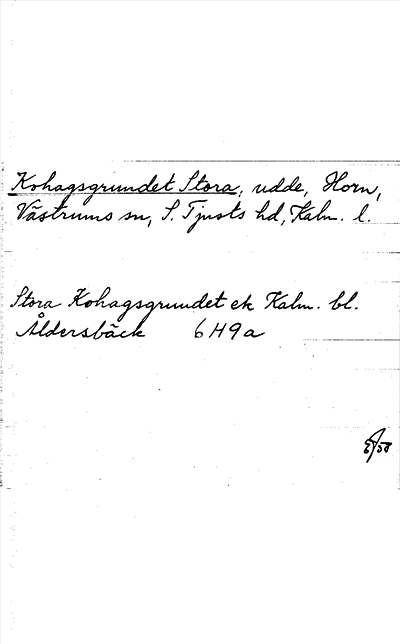 Kohagsgrundet Stora, udde, Horn,
Västrums sn, S. Tjusts hd, Kalm. l.
Stora Kohagsgrundet ek Kalm. bl.
Åldersbäck 6H9a